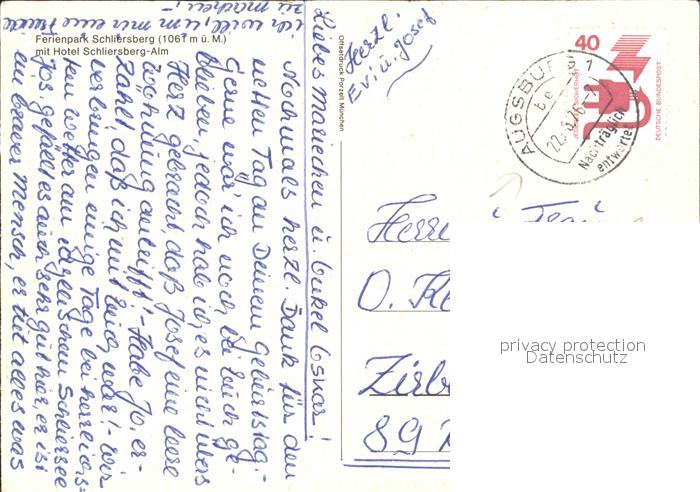 Ferienpark Schliersberg (1061 m ü. M.)
mit Hotel Schliersberg-Alm
Liebes Mariechen u. Onkel Oskar!
Nochmals herzl. Dank für den
netten Tag an Deinem Geburtstag.-
Gerne wär' ich noch bei Euch ge-
blieben, jedoch hab ich es nicht übers
Herz gebracht, daß Josef eine leere
Wohnung antrifft! - Habe Jo. er-
zählt, daß ich mit Euch war! - Wir
verbringen einige Tage bei herrlichs-
ten Wetter am idyllischen Schliersee
Jos. gefällt es auch sehr gut hier, er ist
ein braver Mensch, er tut alles was
ich will, um mir eine Freude
zu machen.-
Herzl.
Evi u. Josef
Offsetdruck Porzelt München
40
DEUTSCHE BUNDESPOST
AUGSBURG 1
be
22.-8.76-8
Nachträglich
entwertet
Herrn u. Frau
O.
89
privacy protection
Datenschutz